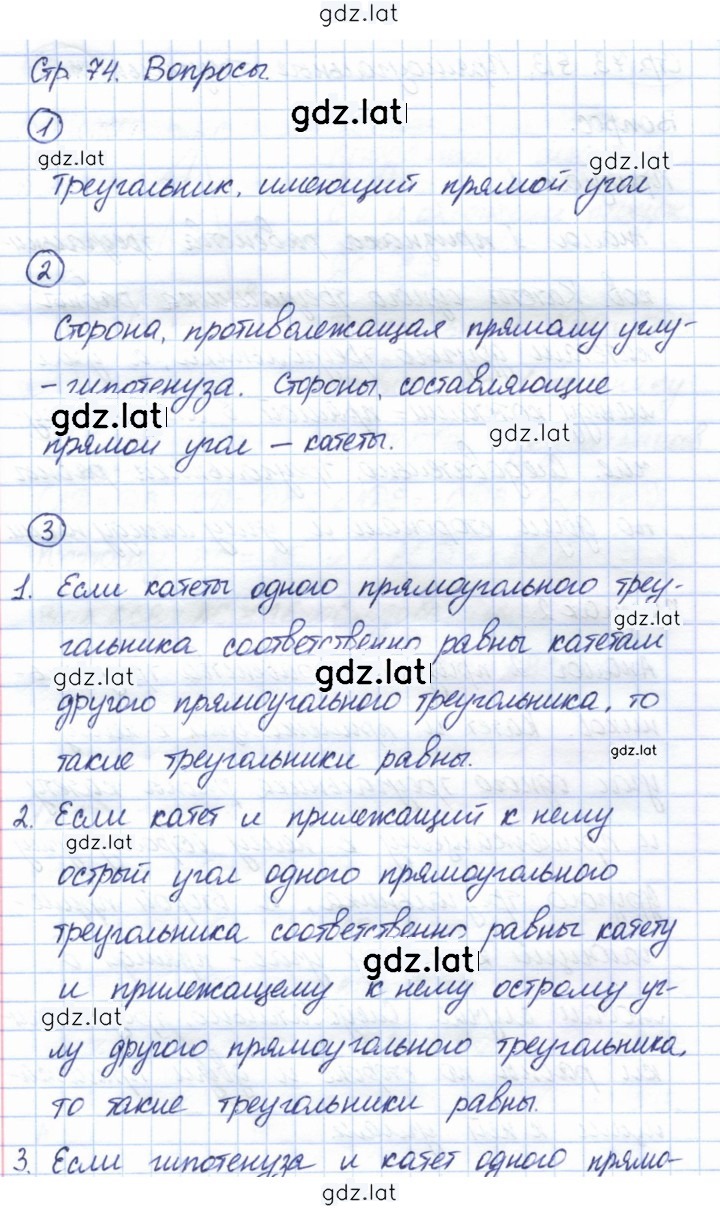 gdz.lat
Стр 74. Вопросы.
gdz.lat
1
gdz.lat
gdz.lat
Треугольник, имеющий прямой угол
2
Сторона, противолежащая прямому углу-
-гипотенуза. Стороны, составляющие
gdz.lat
прямой угол – катеты.
gdz.lat
3
1. Если катеты одного прямоугольного треу-
gdz.lat
гольника соответственно равны катетам
gdz.lat
gdz.lat
другого прямоугольного треугольника, то
такие треугольники равны.
gdz.lat
2. Если катет и прилежащий к нему
gdz.lat
острый угол одного прямоугольного
треугольника соответственно равны катету
gdz.lat
и прилежащему к нему острому уг-
gdz.lat
лу другого прямоугольного треугольника,
то такие треугольники равны.
3. Если гипотенуза и катет одного прямо-
gdz.lat